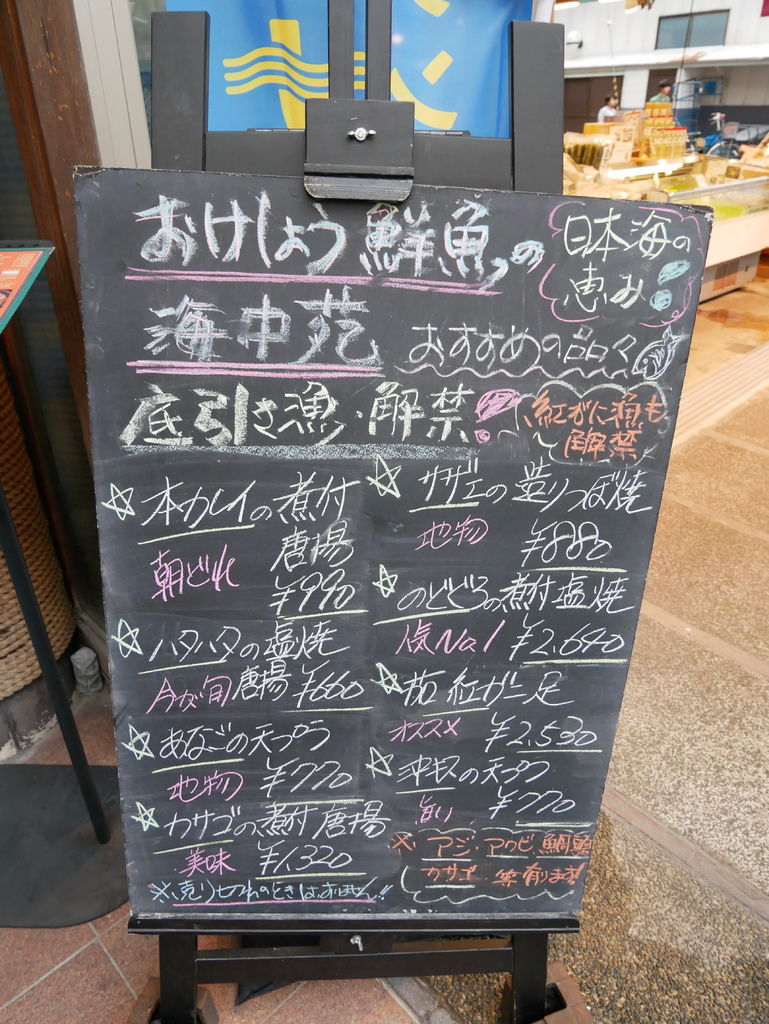 おけしょう鮮魚の
海中苑
日本海の
恵み!
おすすめの品々
底引き漁・解禁!
紅がに漁も
解禁
☆本カレイの煮付
唐揚
朝どれ ¥990
☆ハタハタの塩焼
今が旬 唐揚 ¥660
☆あなごの天プラ
地物 ¥770
☆カサゴの煮付 唐揚
美味 ¥1,320
※売り切れのときはすみません!!
☆サザエの造り つぼ焼
地物 ¥880
☆のどぐろの煮付 塩焼
人気No.1 ¥2,640
☆茹 紅ガニ足
オススメ ¥2,530
☆沖キスの天プラ
旨い ¥770
※ アジ・アワビ 鯛
カサゴ 等有ります!